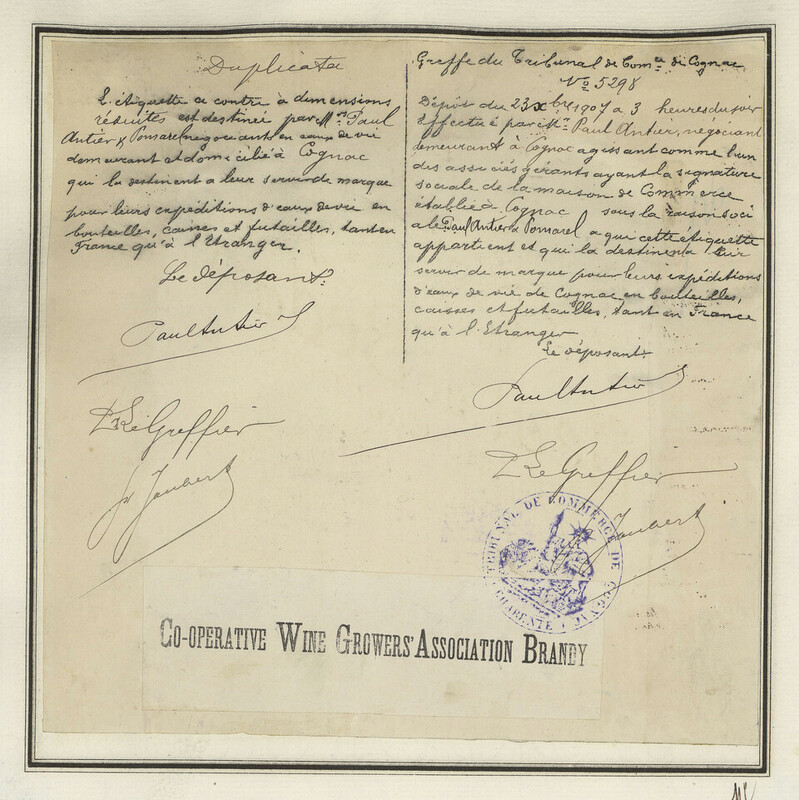 Duplicata
L'étiquette ci contre à dimensions
réduites est destinée par Mrs Paul
Antier & Pomarel négociants en eaux de vie
demeurant et domicilié à Cognac
qui la destinent a leur servir de marque
pour leurs expéditions d'eaux de vie en
bouteilles, caisses et futailles, tant en
France qu'à l'Etranger.
Le déposant.
Paul Antier
Le Greffier
Jaubert
Greffe du Tribunal de Comce de Cognac
No 5298
Dépôt du 23 Xbre 1907 à 3 heures du soir
Effectué par Mr Paul Antier, négociant
demeurant à Cognac agissant comme l'un
des associés gérants ayant la signature
sociale de la maison de Commerce
établie à Cognac sous la raison soci
ale Paul Antier & Pomarel a qui cette étiquette
appartient et qui la destinent a leur
servir de marque pour leurs expéditions
d'eaux de vie de Cognac en bouteilles,
caisses et futailles, tant en France
qu'à l'Etranger
Le déposant
Paul Antier
Le Greffier
Jaubert
TRIBUNAL DE COMMERCE DE COGNAC
CHARENTE
CO-OPERATIVE WINE GROWERS' ASSOCIATION BRANDY